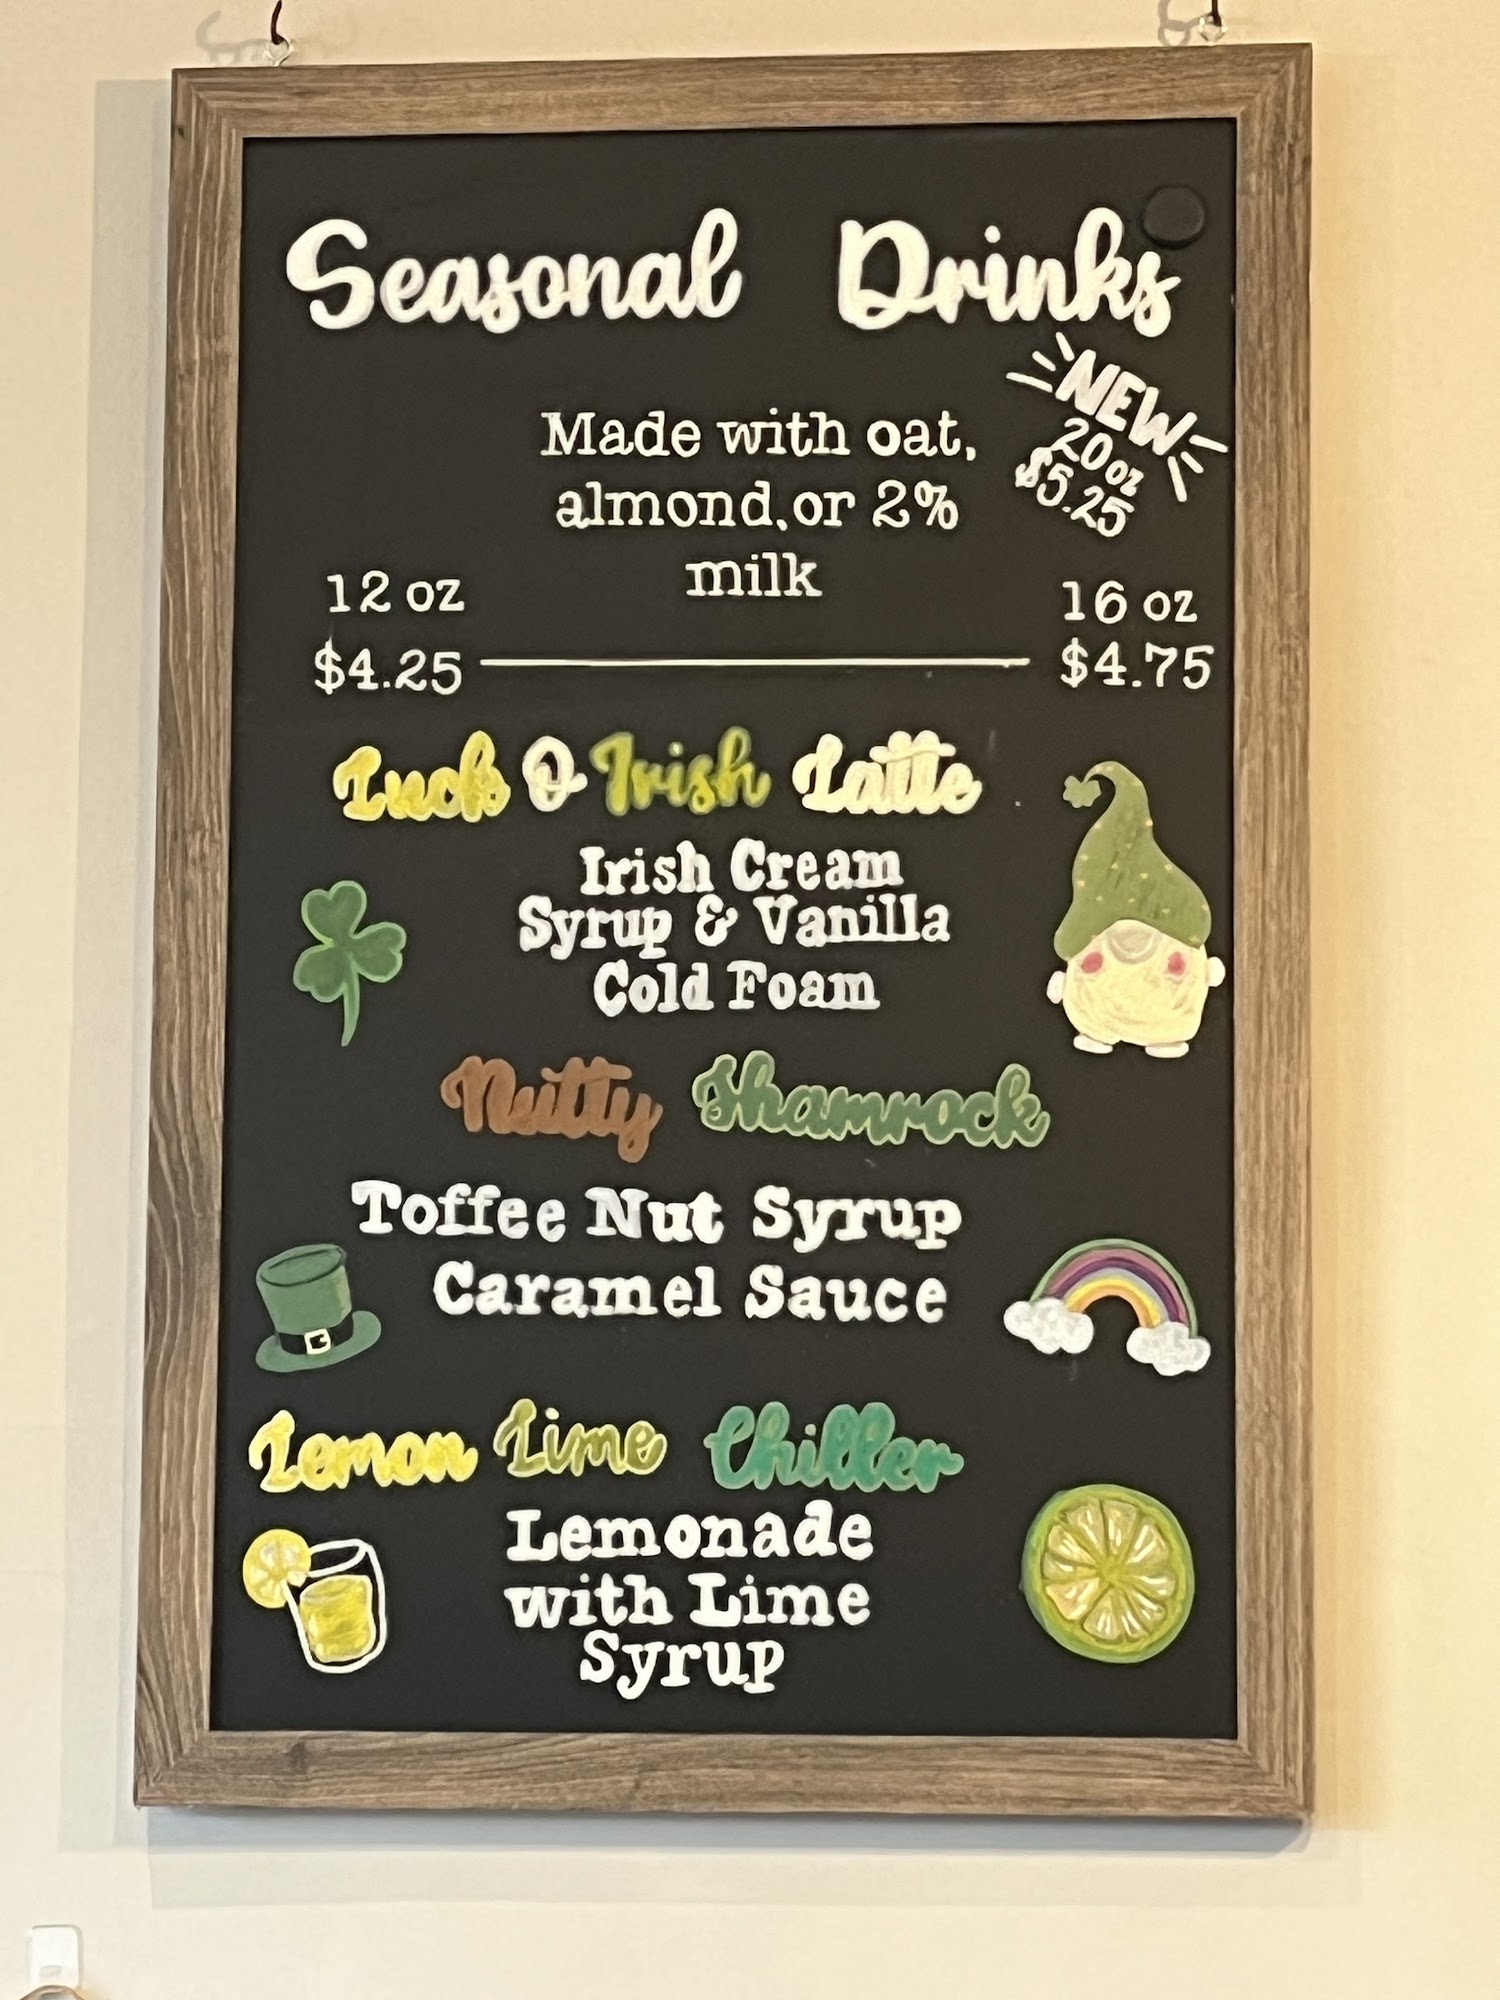 Seasonal Drinks
NEW
20 oz
$5.25
Made with oat,
almond, or 2%
milk
12 oz
$4.25
16 oz
$4.75
Luck O Irish Latte
Irish Cream
Syrup & Vanilla
Cold Foam
Nutty Shamrock
Toffee Nut Syrup
Caramel Sauce
Lemon Lime Chiller
Lemonade
with Lime
Syrup